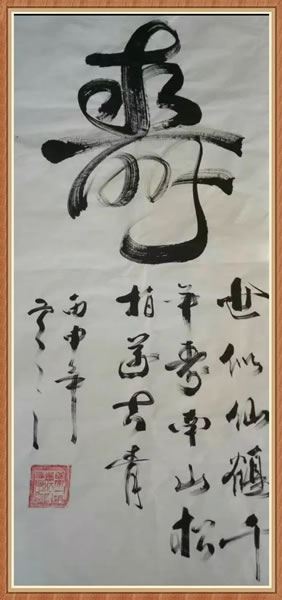 壽
世似仙鶴千
年壽南山松
柏萬古青
丙申年